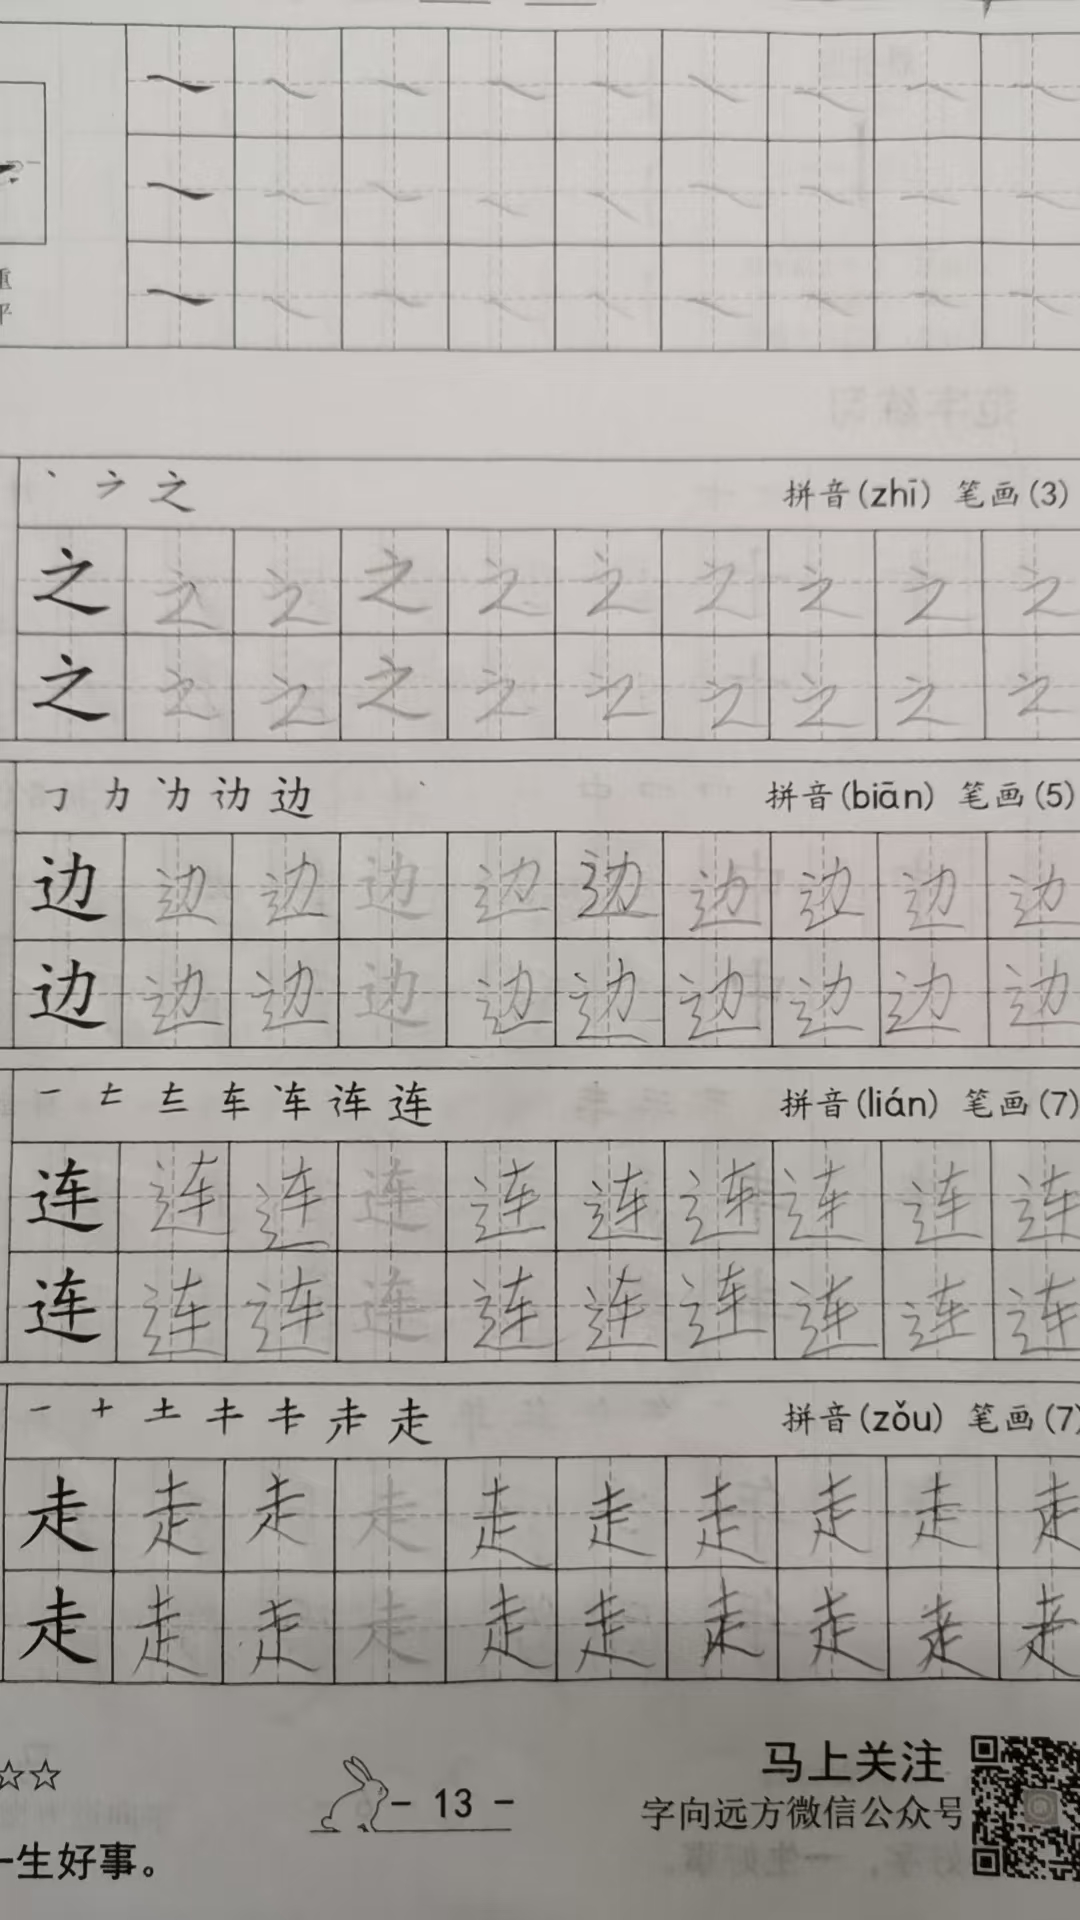 重
平
丶 ㇇ 之 拼音(zhī) 笔画(3)
之 之 之 之 之 之 之 之 之 之
之 之 之 之 之 之 之 之 之 之
力 边 拼音(biān) 笔画(5)
边 边 边 边 边 边 边 边 边 边
边 边 边 边 边 边 边 边 边 边
一 车 连 拼音(lián) 笔画(7)
连 连 连 连 连 连 连 连 连 连
连 连 连 连 连 连 连 连 连 连
一 十 土 走 拼音(zǒu) 笔画(7)
走 走 走 走 走 走 走 走 走 走
走 走 走 走 走 走 走 走 走 走
☆☆
- 13 -
马上关注
字向远方微信公众号
一生好事。